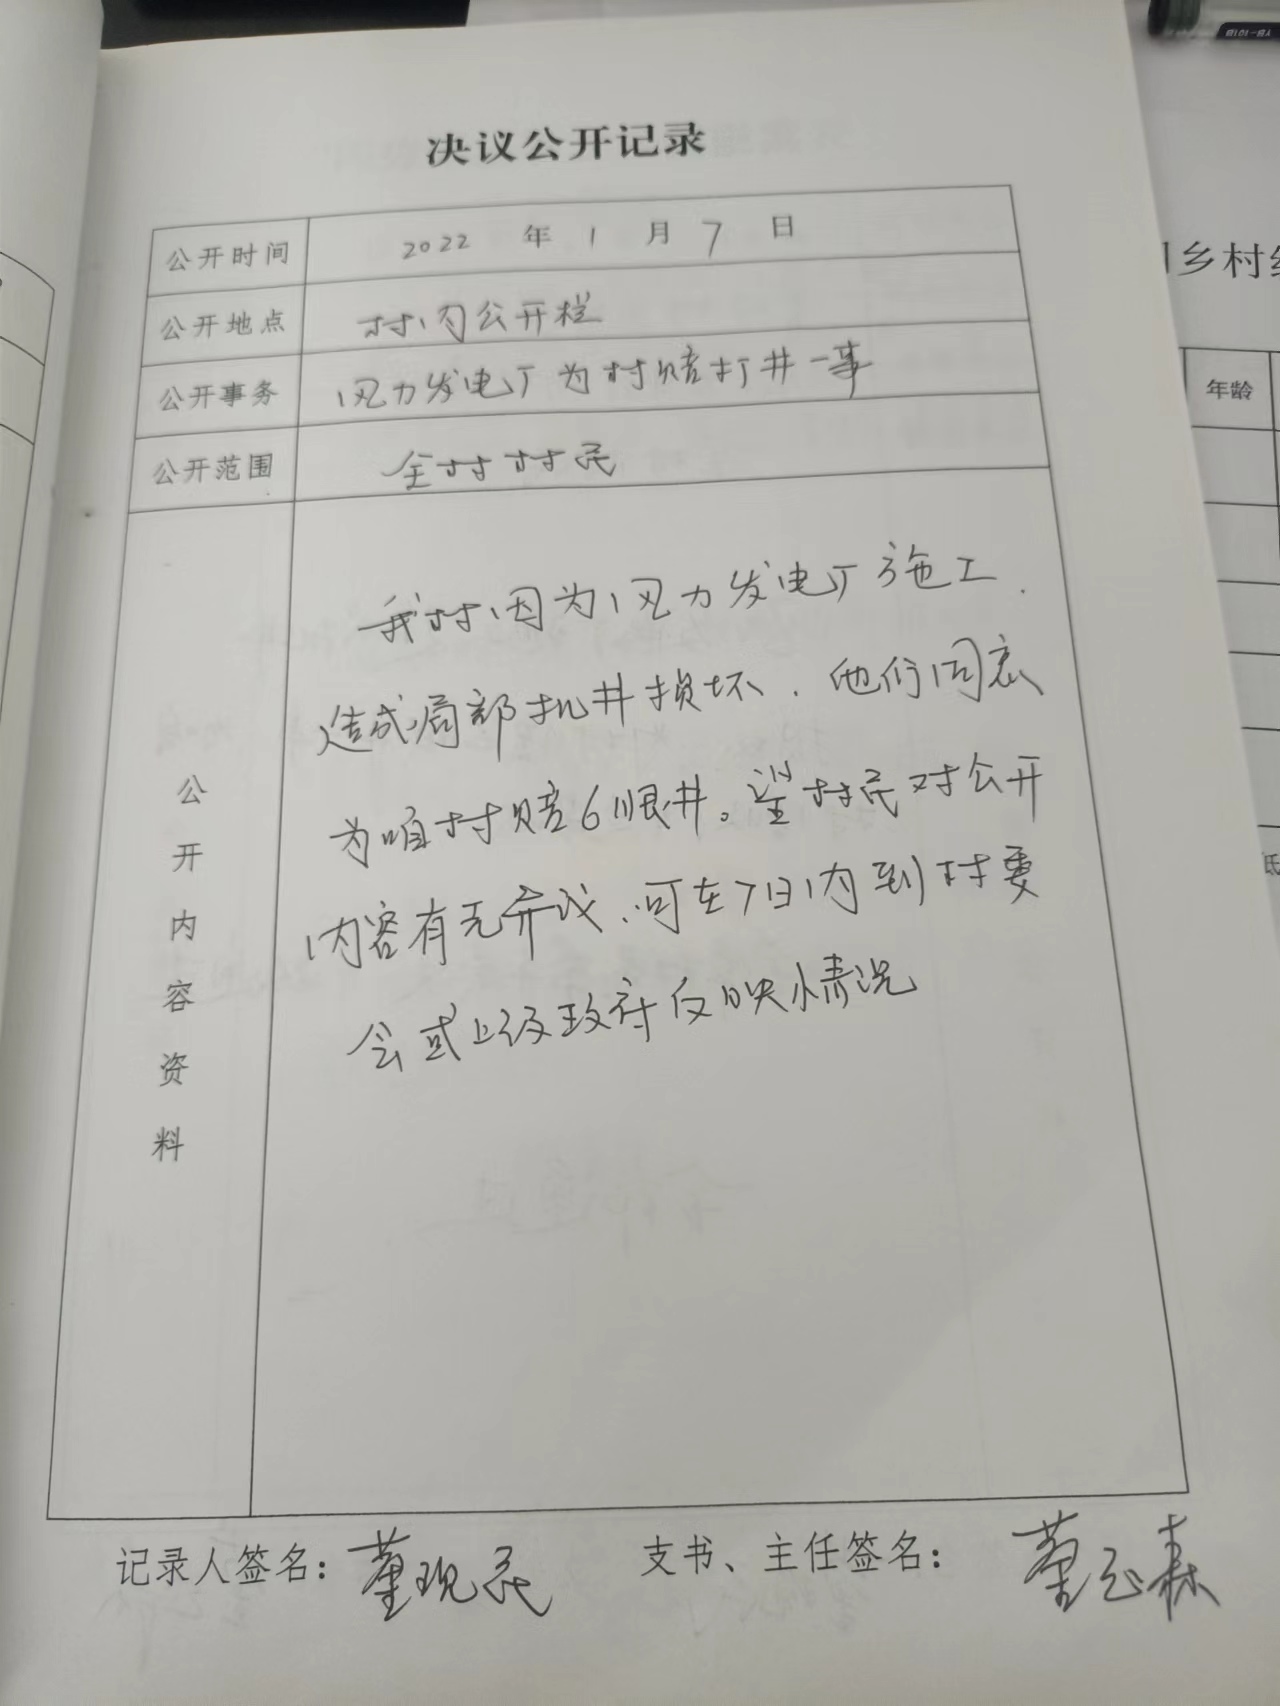 决议公开记录
公开时间 2022 年 1 月 7 日
公开地点 村内公开栏
公开事务 风力发电厂为村赔打井一事
公开范围 全村村民
公开内容资料
我村因为风力发电厂施工.
造成局部机井损坏.他们同意
为咱村赔6眼井。望村民对公开
内容有无弃议、可在7日内到村委
会或上级政府反映情况
记录人签名: 董观
支书、主任签名: 董 森
乡村
年龄